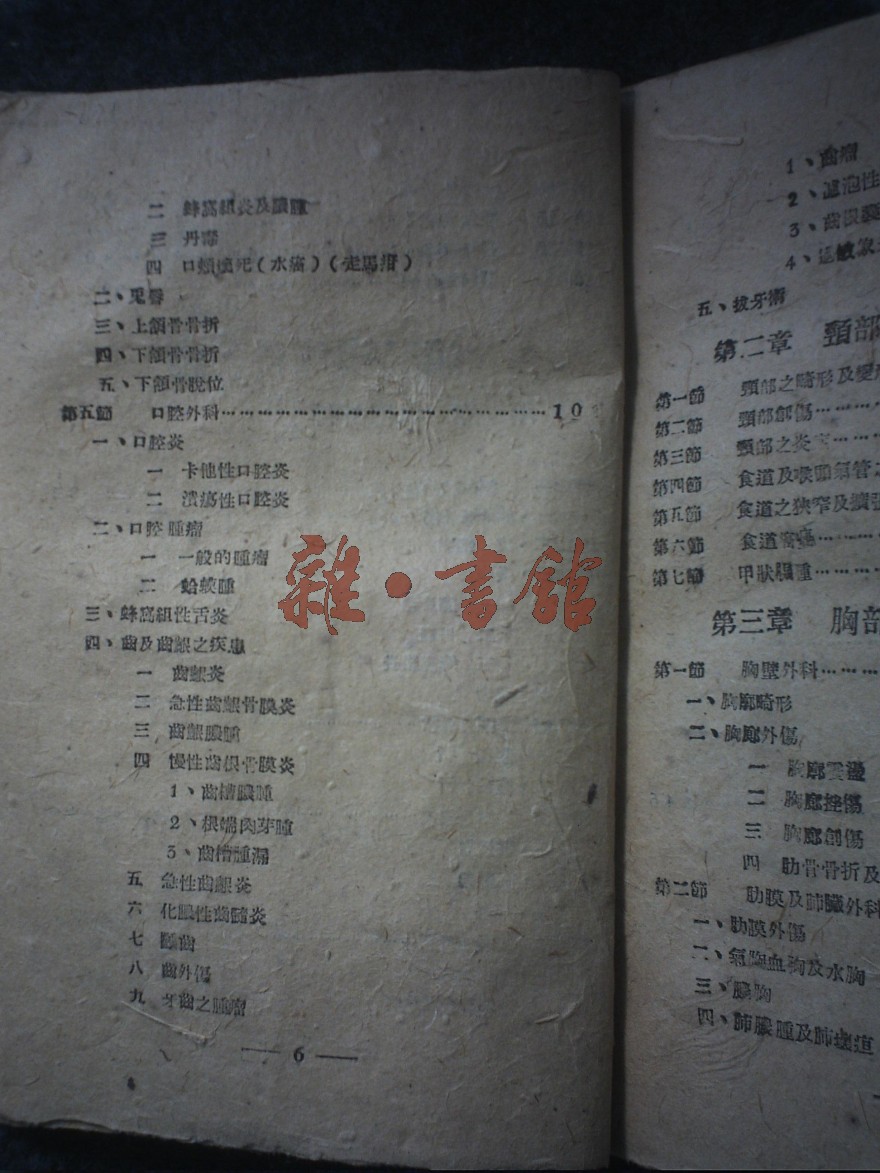 二 蜂窩組炎及膿腫
三 丹毒
四 口頰壞死(水癌)(走馬疳)
二、兎唇
三、上頷骨骨折
四、下頷骨骨折
五、下頷骨脫位
第五節 口腔外科………………………………………………10
一、口腔炎
一 卡他性口腔炎
二 潰瘍性口腔炎
二、口腔腫瘤
一 一般的腫瘤
二 蛤蟆腫
三、蜂窩組性舌炎
四、齒及齒齦之疾患
一 齒齦炎
二 急性齒齦骨膜炎
三 齒齦膿腫
四 慢性齒根骨膜炎
1、齒槽膿腫
2、根端肉芽腫
3、齒槽膿漏
五 急性齒齦炎
六 化膿性齒髓炎
七 齲齒
八 齒外傷
九 牙齒之腫瘤
— 6 —
1、齒瘤
2、濾泡性
3、齒根膜
4、
五、拔牙術
第二章 頸部
第一節 頸部之畸形及變
第二節 頸部創傷………
第三節 頸部之炎
第四節 食道及喉頭氣管之
第五節 食道之狹窄及擴張
第六節 食道
第七節 甲狀腺腫………
第三章 胸部
第一節 胸壁外科………
一、胸廓畸形
二、胸廓外傷
一 胸廓震盪
二 胸廓挫傷
三 胸廓創傷
四 肋骨骨折及
第二節 肋膜及肺臟外科
一、肋膜外傷
二、氣胸血胸及水胸
三、膿胸
四、肺膿腫及肺
雜·書館